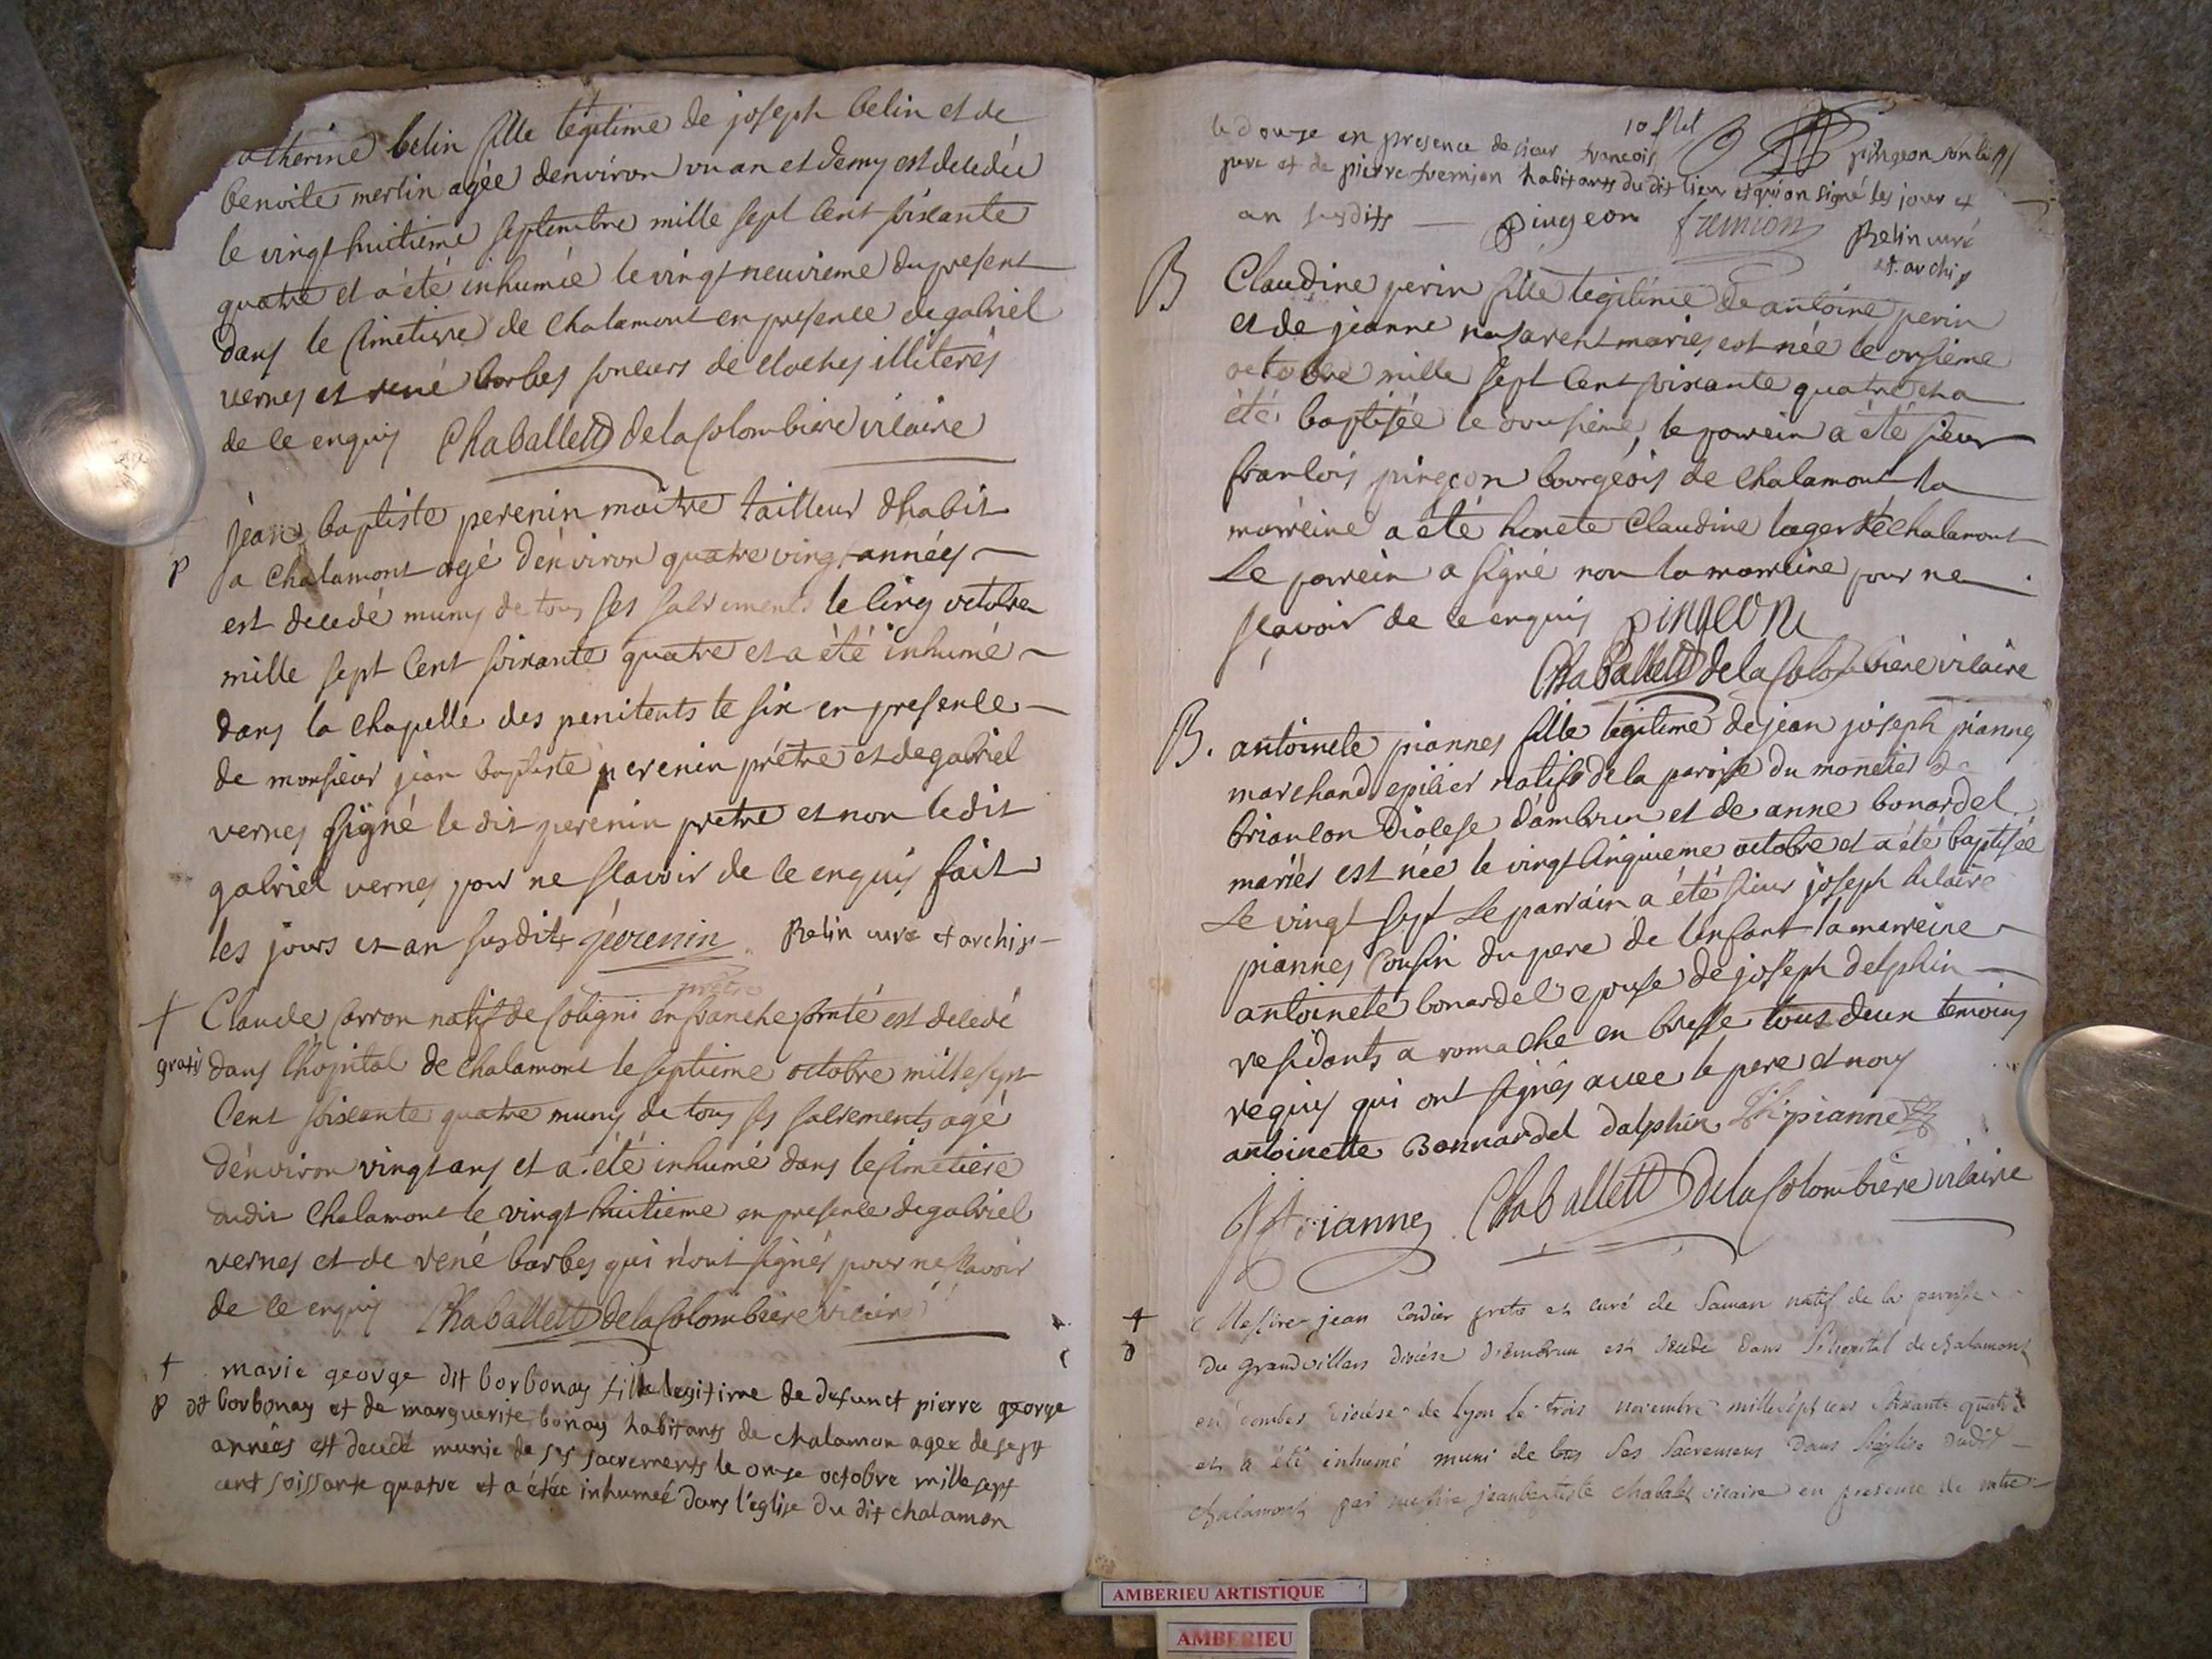 atherine belin fille legitime de joseph belin et de
benoite merlin agée denviron un an et demy est decedée
le vingt huitieme septembre mille sept cent soixante
quatre et a été inhumée le vingt neuvieme du present
dans le cimetiere de chalamont en presence de gabriel
vernes et rené barbes soneurs de cloches illiterés
de ce enquis Chaballett delacolombiere vicaire
jean baptiste perenin maitre tailleur dhabit
P a chalamont agé d'environ quatre vingt années
est decedé muny de tous ses sacrements le cinq octobre
mille sept cent soixante quatre et a été inhumé
dans la chapelle des penitents le six en presence
de monsieur jean baptiste perenin prétre et de gabriel
vernes signé le dit perenin pretre et non le dit
gabriel vernes pour ne scavoir de ce enquis fait
les jours et an susdits perenin Belin curé et archip
pretre
† Claude carron natif de coligni en franche comté est decedé
gratis dans l'hopital de chalamont le septieme octobre mille sept
cent soixante quatre muny de tous ses sacrements agé
d'environ vingt ans et a été inhumé dans le cimetiere
dudit chalamont le vingt huitieme en presence de gabriel
vernes et de rené barbes qui n'ont signés pour ne scavoir
de ce enquis Chaballett delacolombiere vicaire
† marie george dit borbonay fille legitime de defunct pierre george
P dit borbonay et de marguerite bonay habitants de chalamon agee de sept
années est decedé munie de ses sacrements le onze octobre mille sept
cent soissante quatre et a étée inhumeé dans l'église du dit chalamon
le douze en presence de sieur francois pingeon son
pere et de pierre fremion habitants du dit lieu et qui on signé les jour et
an susdits pingeon fremion Belin curé
et archip
B Claudine perin fille legitime de antoine perin
et de jeanne nasarent maries est née le onsieme
octobre mille sept cent soixante quatre et a
été baptisée le dousieme, le parrein a été sieur
francois pingeon bourgeois de chalamont la
marreine a été honete Claudine lager de chalamont
Le parrein a signé non la marreine pour ne
scavoir de ce enquis pingeon
Chaballett delacolombiere vicaire
B. antoinete piannes fille legitime de jean joseph piannes
marchand epicier natif de la paroisse du monetier de
briancon diocese d'ambrun et de anne bonardel
mariés est née le vingt cinquieme octobre et a été baptisée
Le vingt sept Le parrain a été sieur joseph hilaire
piannes cousin du pere de l'enfant la marreine
antoinete bonardel epouse de joseph delphin
residants a romache en bresse tous deux temoins
requis qui ont signés avec le pere et nous
antoinette Bonnardel dalphin piannes
piannes Chaballett delacolombiere vicaire
† Messire jean Cordier pretre et curé de Saman natif de la paroisse
du grandvillars diocese d'embrun est decedé dans l'hopital de chalamont
en dombes diocese de lyon le trois novembre mille sept cens soixante quatre
et a été inhumé muni de tous ses sacremens dans l'église dudit
chalamont par messire jean baptiste chaballet vicaire en presence de
AMBERIEU ARTISTIQUE
AMBERIEU